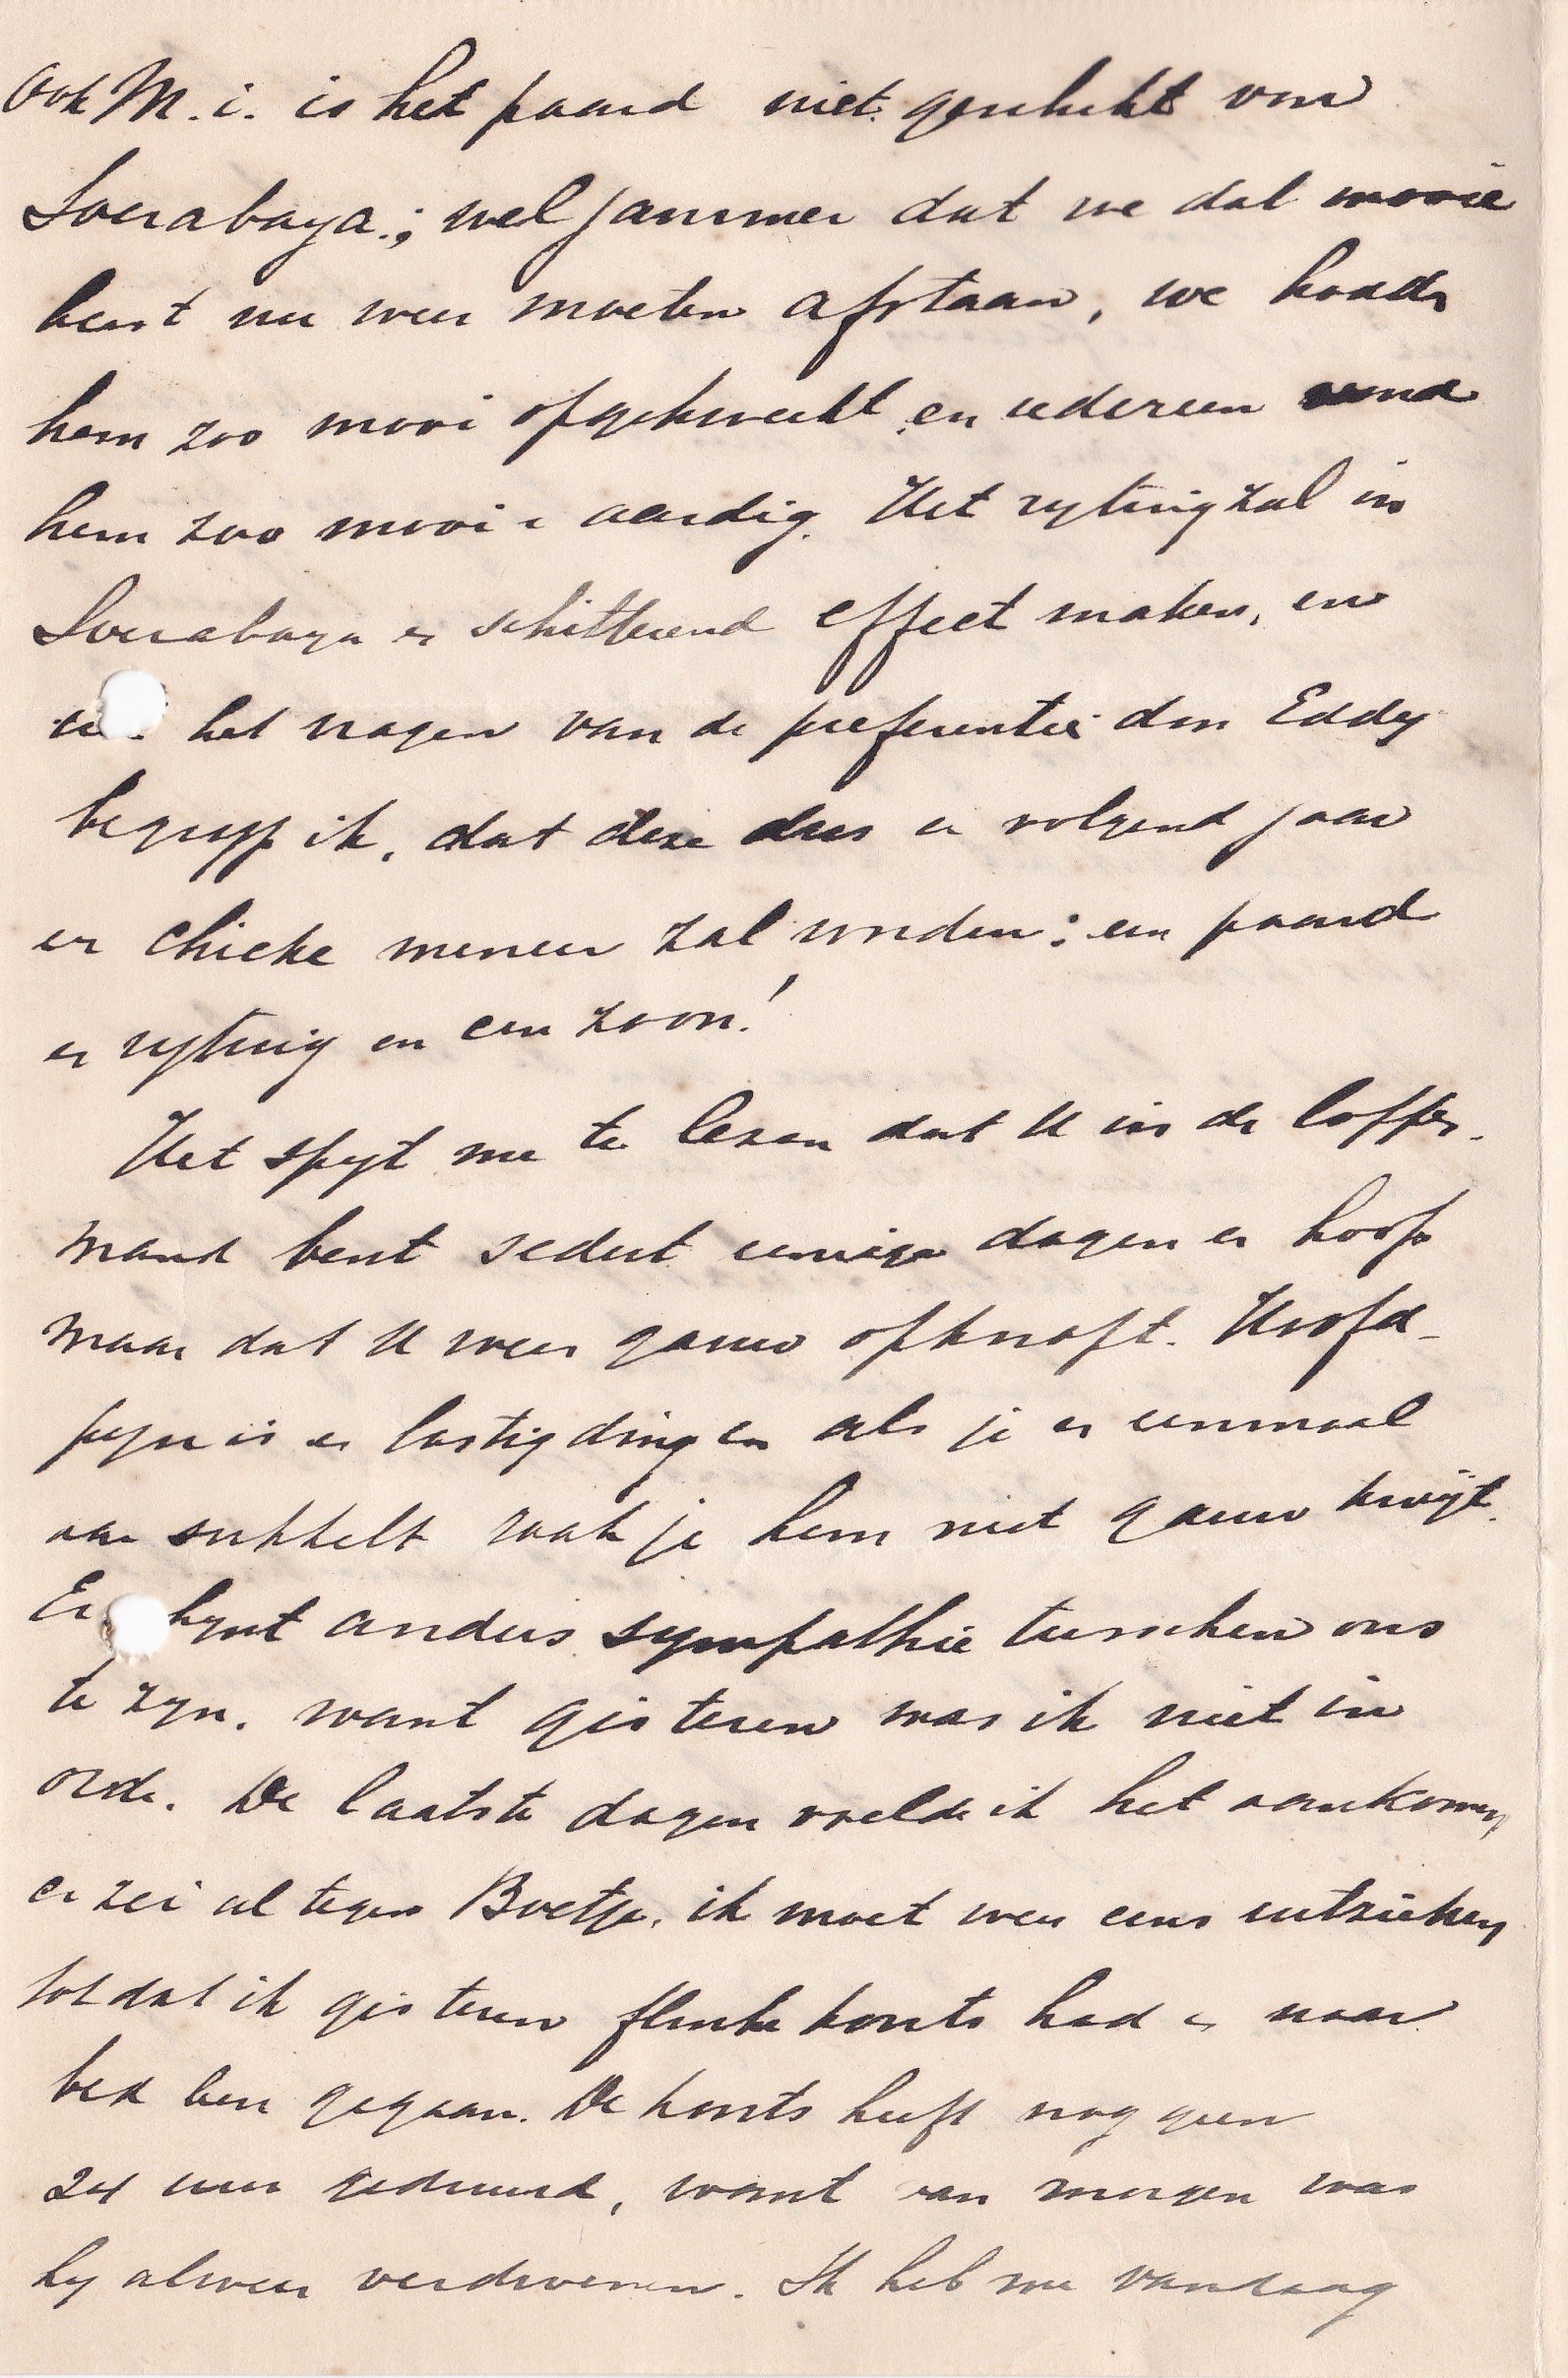 Ook M.i. is het paard niet geschikt voor
Soerabaya; wel jammer dat we dat mooie
beest nu weer moeten afstaan, we hadden
hem zoo mooi opgekweekt en iedereen vond
hem zoo mooi en aardig. Het rytuig zal in
Soerabaya een schitterend effect maken, en
uit het vragen van de preferentie door Eddy
begryp ik, dat deze dus en volgend jaar
een chieke meneer zal worden: een paard
een rytuig en een zoon!
Het spyt me te lezen dat U in de lappen-
mand bent sedert eenige dagen en hoop
maar dat U weer gauw opknapt. Hoofd-
pyn is een lastig ding en als je er eenmaal
aan sukkelt raak je hem niet gauw kwijt.
Er schynt anders sympathie tusschen ons
te zyn, want gisteren was ik niet in
orde. De laatste dagen voelde ik het aankomen
en zei al tegen Boetje, ik moet weer eens uitzieken
totdat ik gisteren flinke koorts had en naar
bed ben gegaan. De koorts heeft nog geen
24 uur geduurd, want van morgen was
hy alweer verdwenen. Ik heb me vandaag